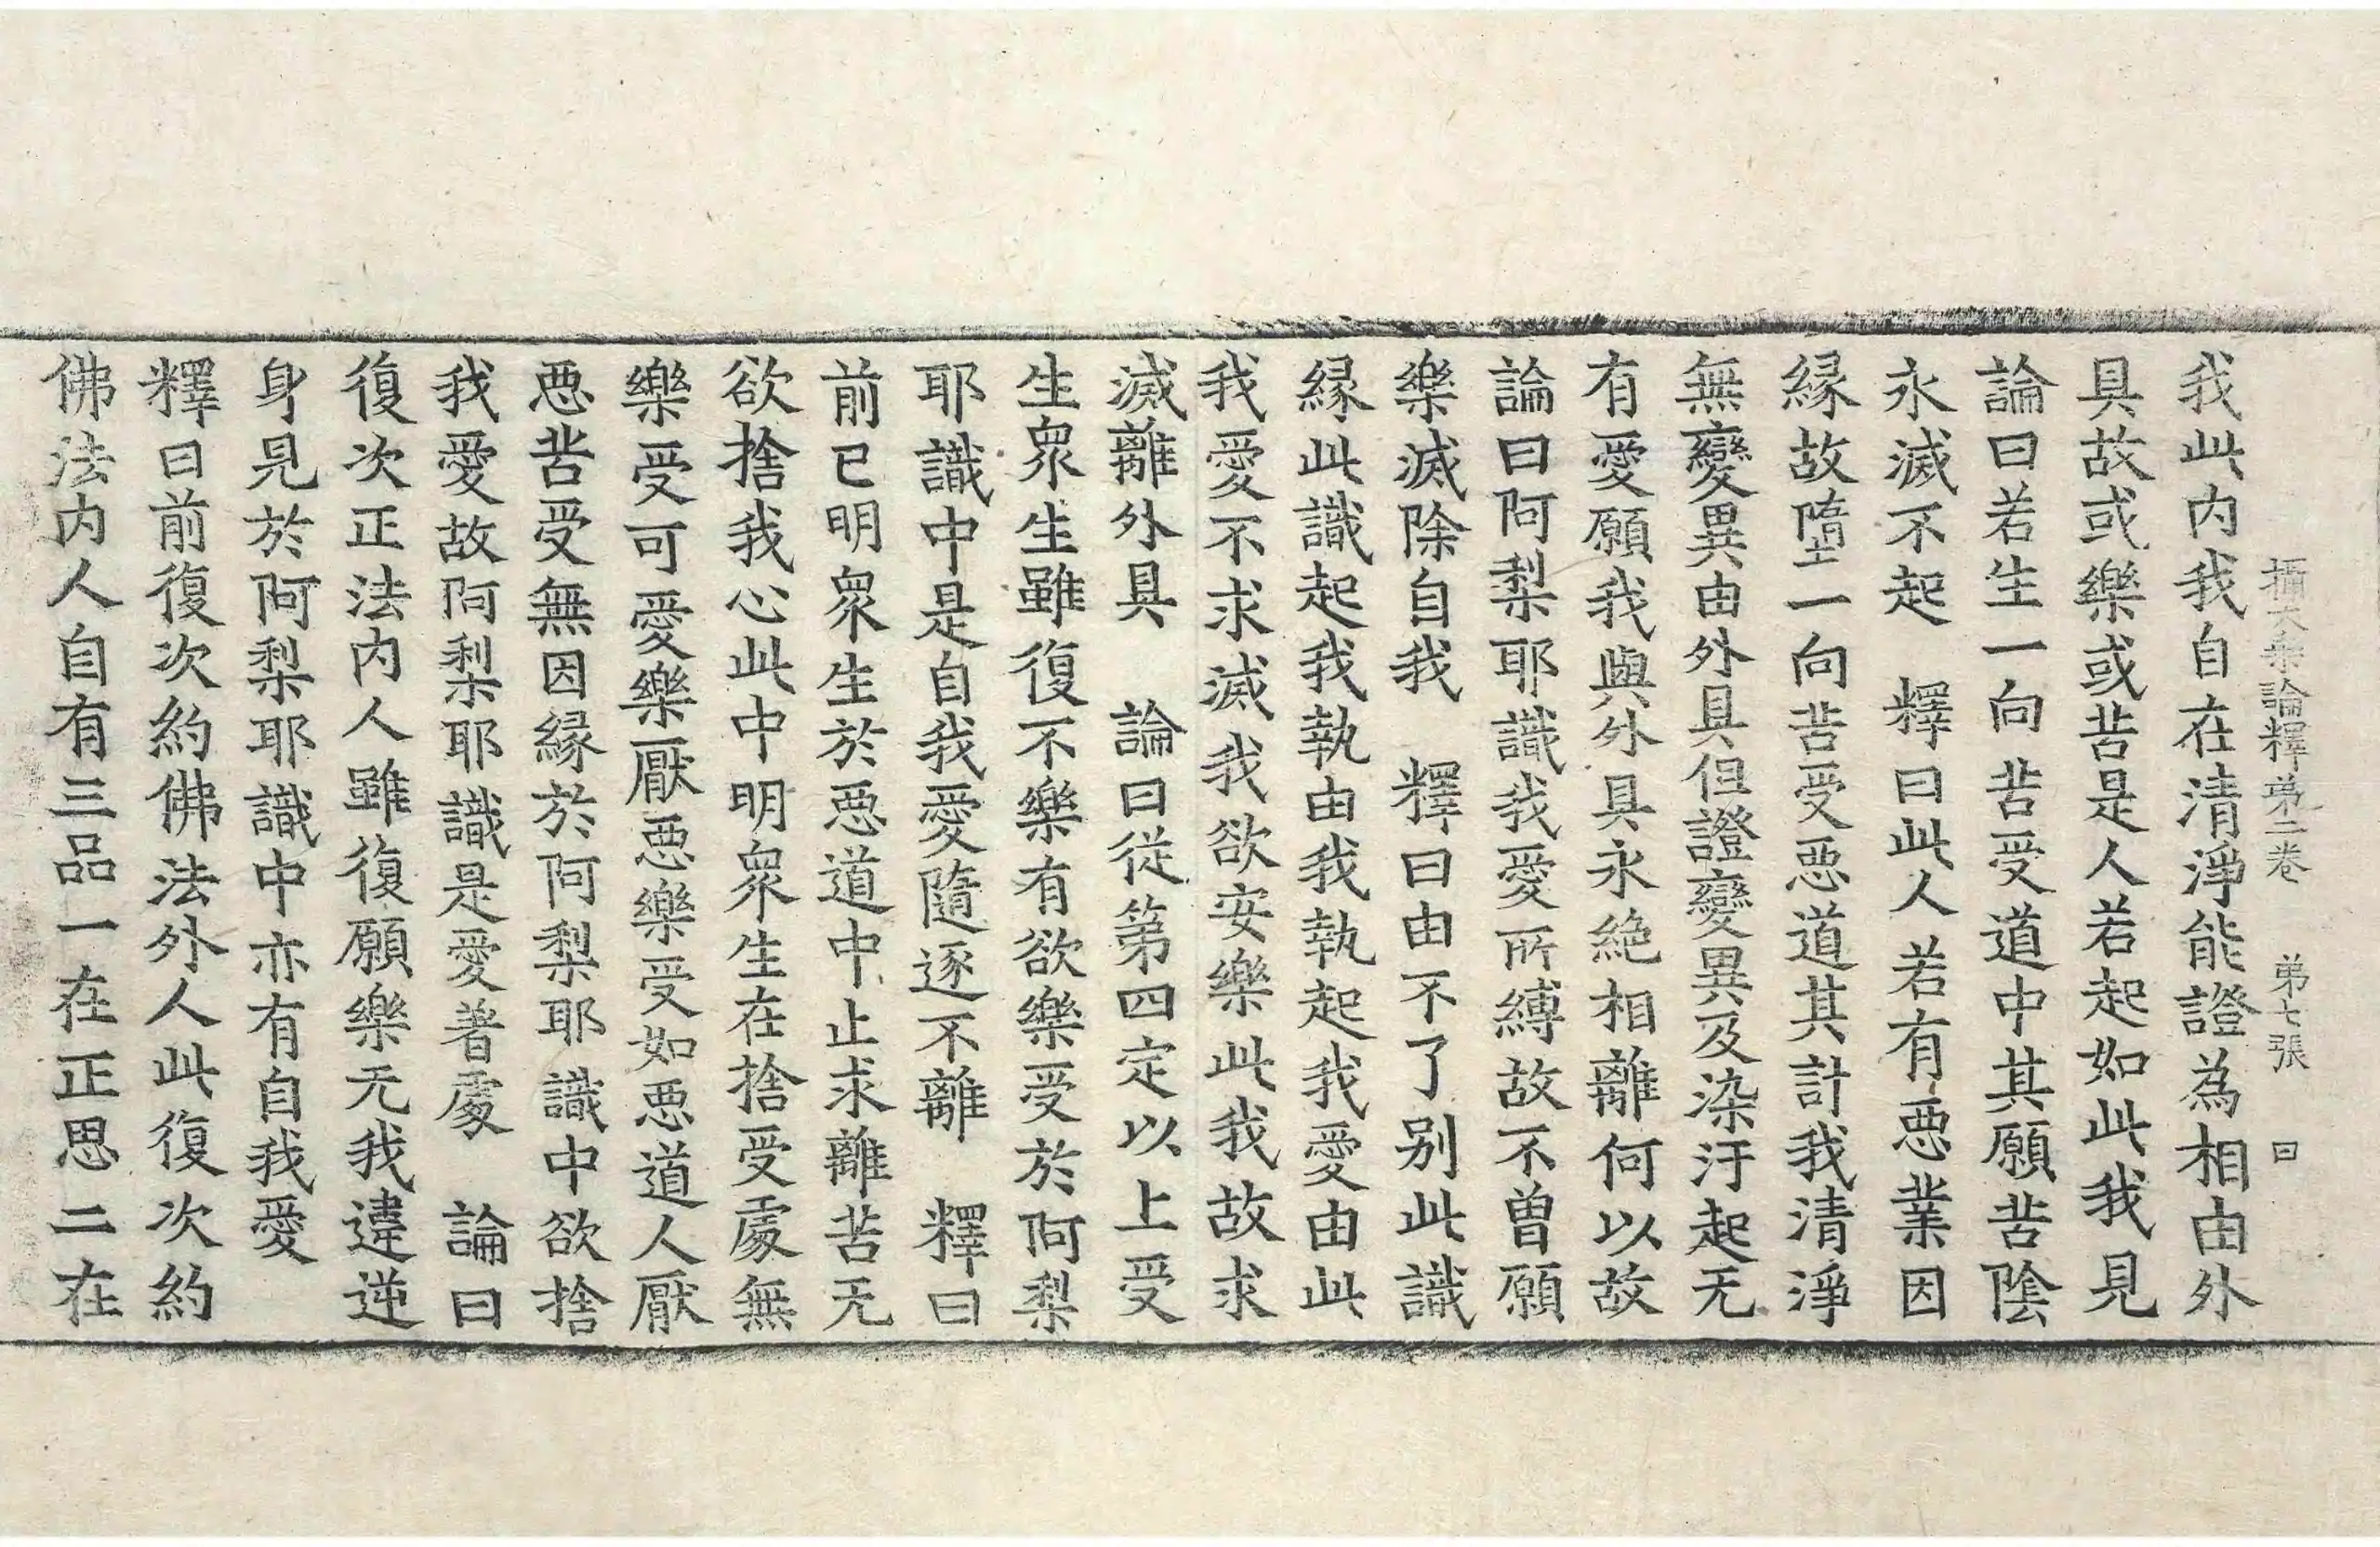 攝大乗論釋苐二卷　苐七張　曰
我此内我自在清淨能證為相由外
具故或樂或苦是人若起如此我見
論曰若生一向苦受道中其願苦陰
永滅不起　釋曰此人若有惡業因
緣故墮一向苦受惡道其計我清淨
無變異由外具但證變異及染汙起无
有愛願我與外具永絶相離何以故
論曰阿梨耶識我愛所縛故不曾願
樂滅除自我　釋曰由不了别此識
緣此識起我執由我執起我愛由此
我愛不求滅我欲安樂此我故求
滅離外具　論曰從第四定以上受
生衆生雖復不樂有欲樂受於阿梨
耶識中是自我愛隨逐不離　釋曰
前已明衆生於惡道中止求離苦无
欲捨我心此中明衆生在捨受處無
樂受可愛樂厭惡樂受如惡道人厭
惡苦受無因緣於阿梨耶識中欲捨
我愛故阿梨耶識是愛著處　論曰
復次正法内人雖復願樂无我違逆
身見於阿梨耶識中亦有自我愛
釋曰前復次約佛法外人此復次約
佛法内人自有三品一在正思二在